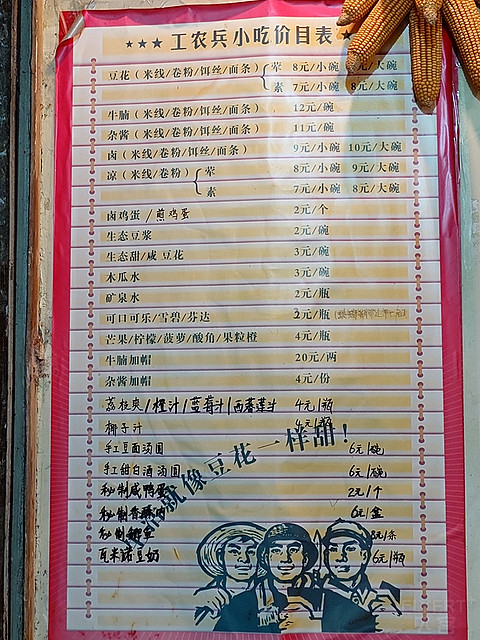 ★★★ 工农兵小吃价目表 ★
豆花（米线/卷粉/饵丝/面条） 荤 8元/小碗 大碗
素 7元/小碗 8元/大碗
牛腩（米线/卷粉/饵丝/面条） 12元/碗
杂酱（米线/卷粉/饵丝/面条） 11元/碗
卤（米线/卷粉/饵丝/面条） 9元/小碗 10元/大碗
凉（米线/卷粉） 荤 8元/小碗 9元/大碗
素 7元/小碗 8元/大碗
卤鸡蛋/煎鸡蛋 2元/个
生态豆浆 2元/碗
生态甜/咸豆花 3元/碗
木瓜水 3元/碗
矿泉水 2元/瓶
可口可乐/雪碧/芬达 2元/瓶
芒果/柠檬/菠萝/酸角/果粒橙 4元/瓶
牛腩加帽 20元/两
杂酱加帽 4元/份
荔枝爽/橙汁/蓝莓汁/西番莲汁 4元/瓶
椰子汁 4元/瓶
手工豆面汤圆 6元/碗
手工甜白酒汤圆 6元/碗
秘制咸鸭蛋 2元/个
秘制香 6元/盒
秘制 元/条
豆奶 6元/瓶
就像豆花一样甜！